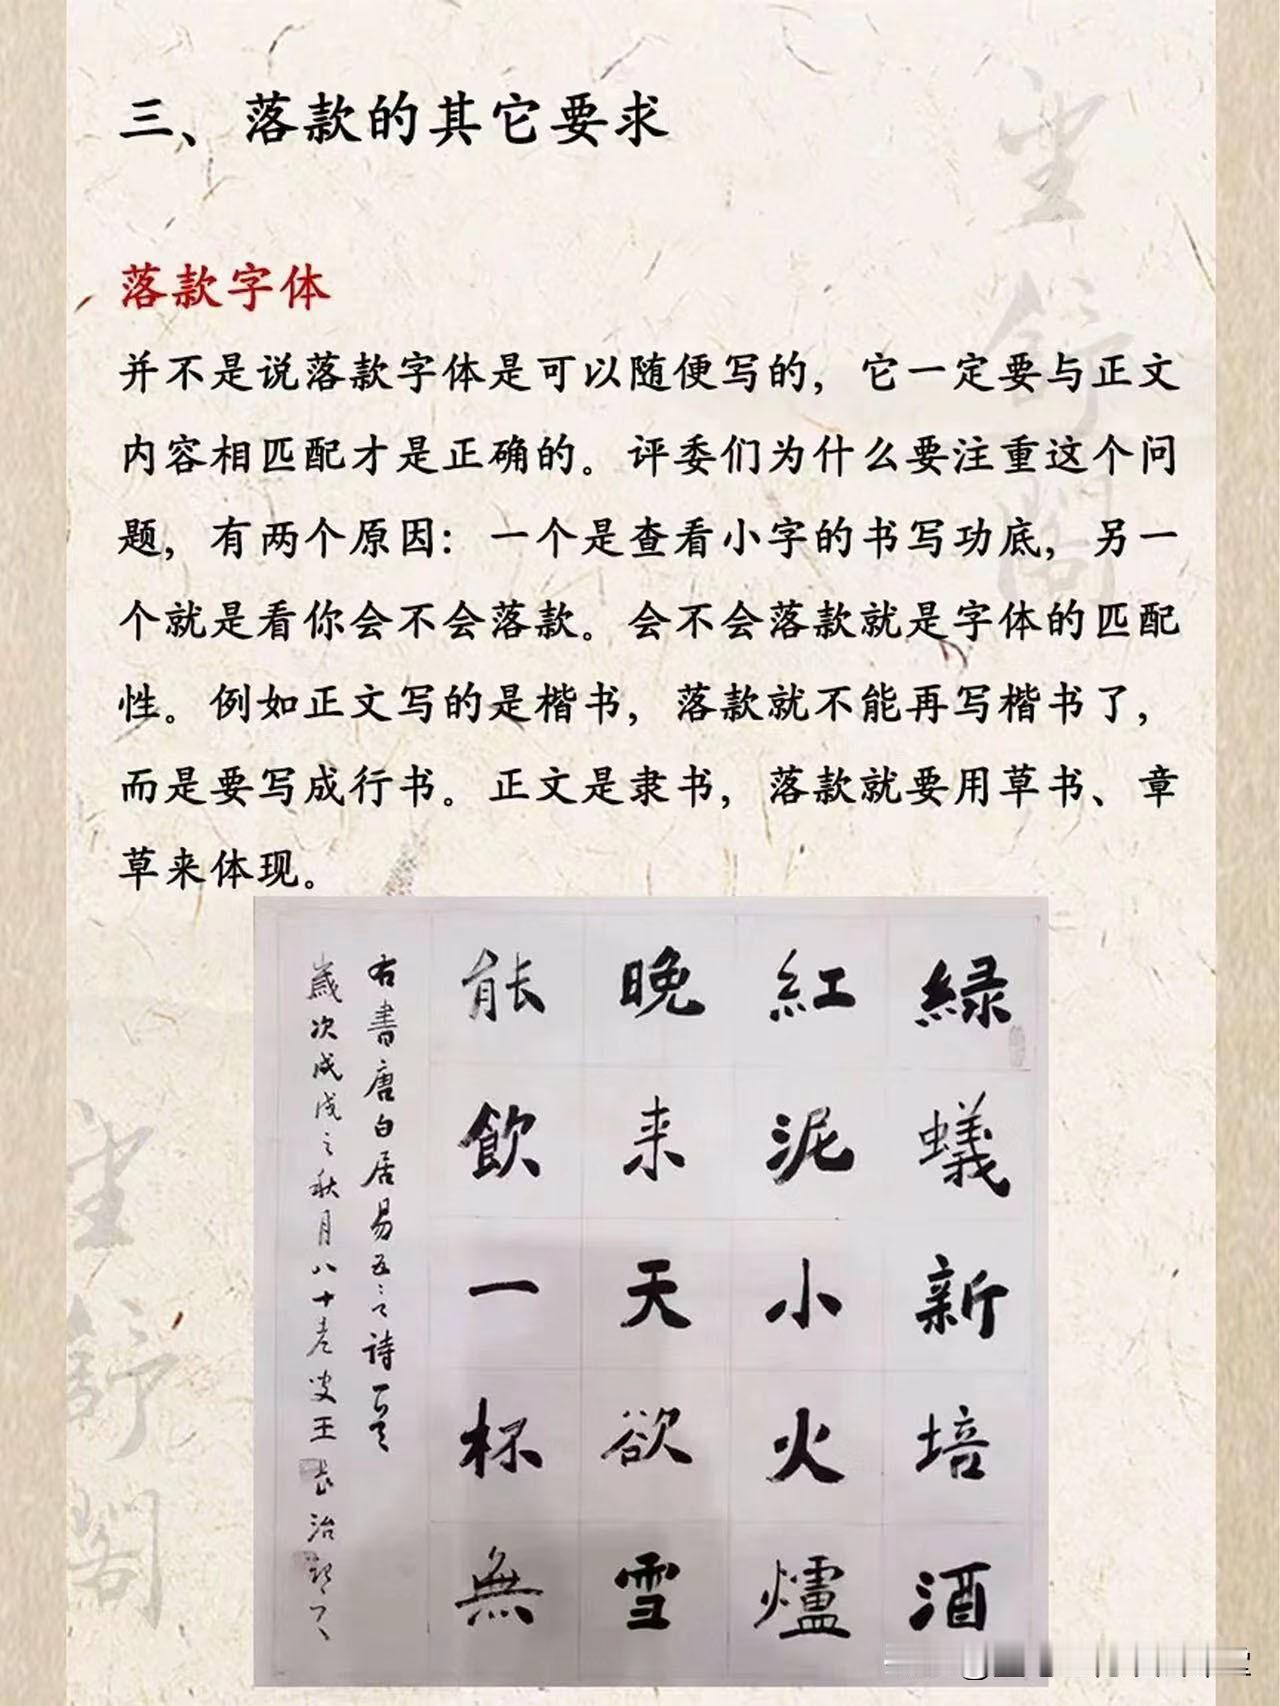 三、落款的其它要求
落款字体
并不是说落款字体是可以随便写的，它一定要与正文
内容相匹配才是正确的。评委们为什么要注重这个问
题，有两个原因：一个是查看小字的书写功底，另一
个就是看你会不会落款。会不会落款就是字体的匹配
性。例如正文写的是楷书，落款就不能再写楷书了，
而是要写成行书。正文是隶书，落款就要用草书、章
草来体现。
緑蟻新培酒
紅泥小火爐
晚来天欲雪
能飲一杯無
右書唐白居易五言詩一首
歲次戊戌之秋月八十老叟王長治